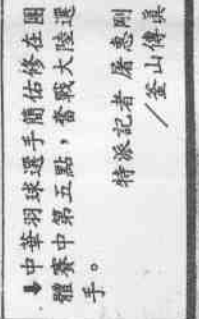 ⬇中華羽球選手簡佑修在團
體賽中第五點，奮戰大陸選
手。
特派記者 屠惠剛
／釜山傳真